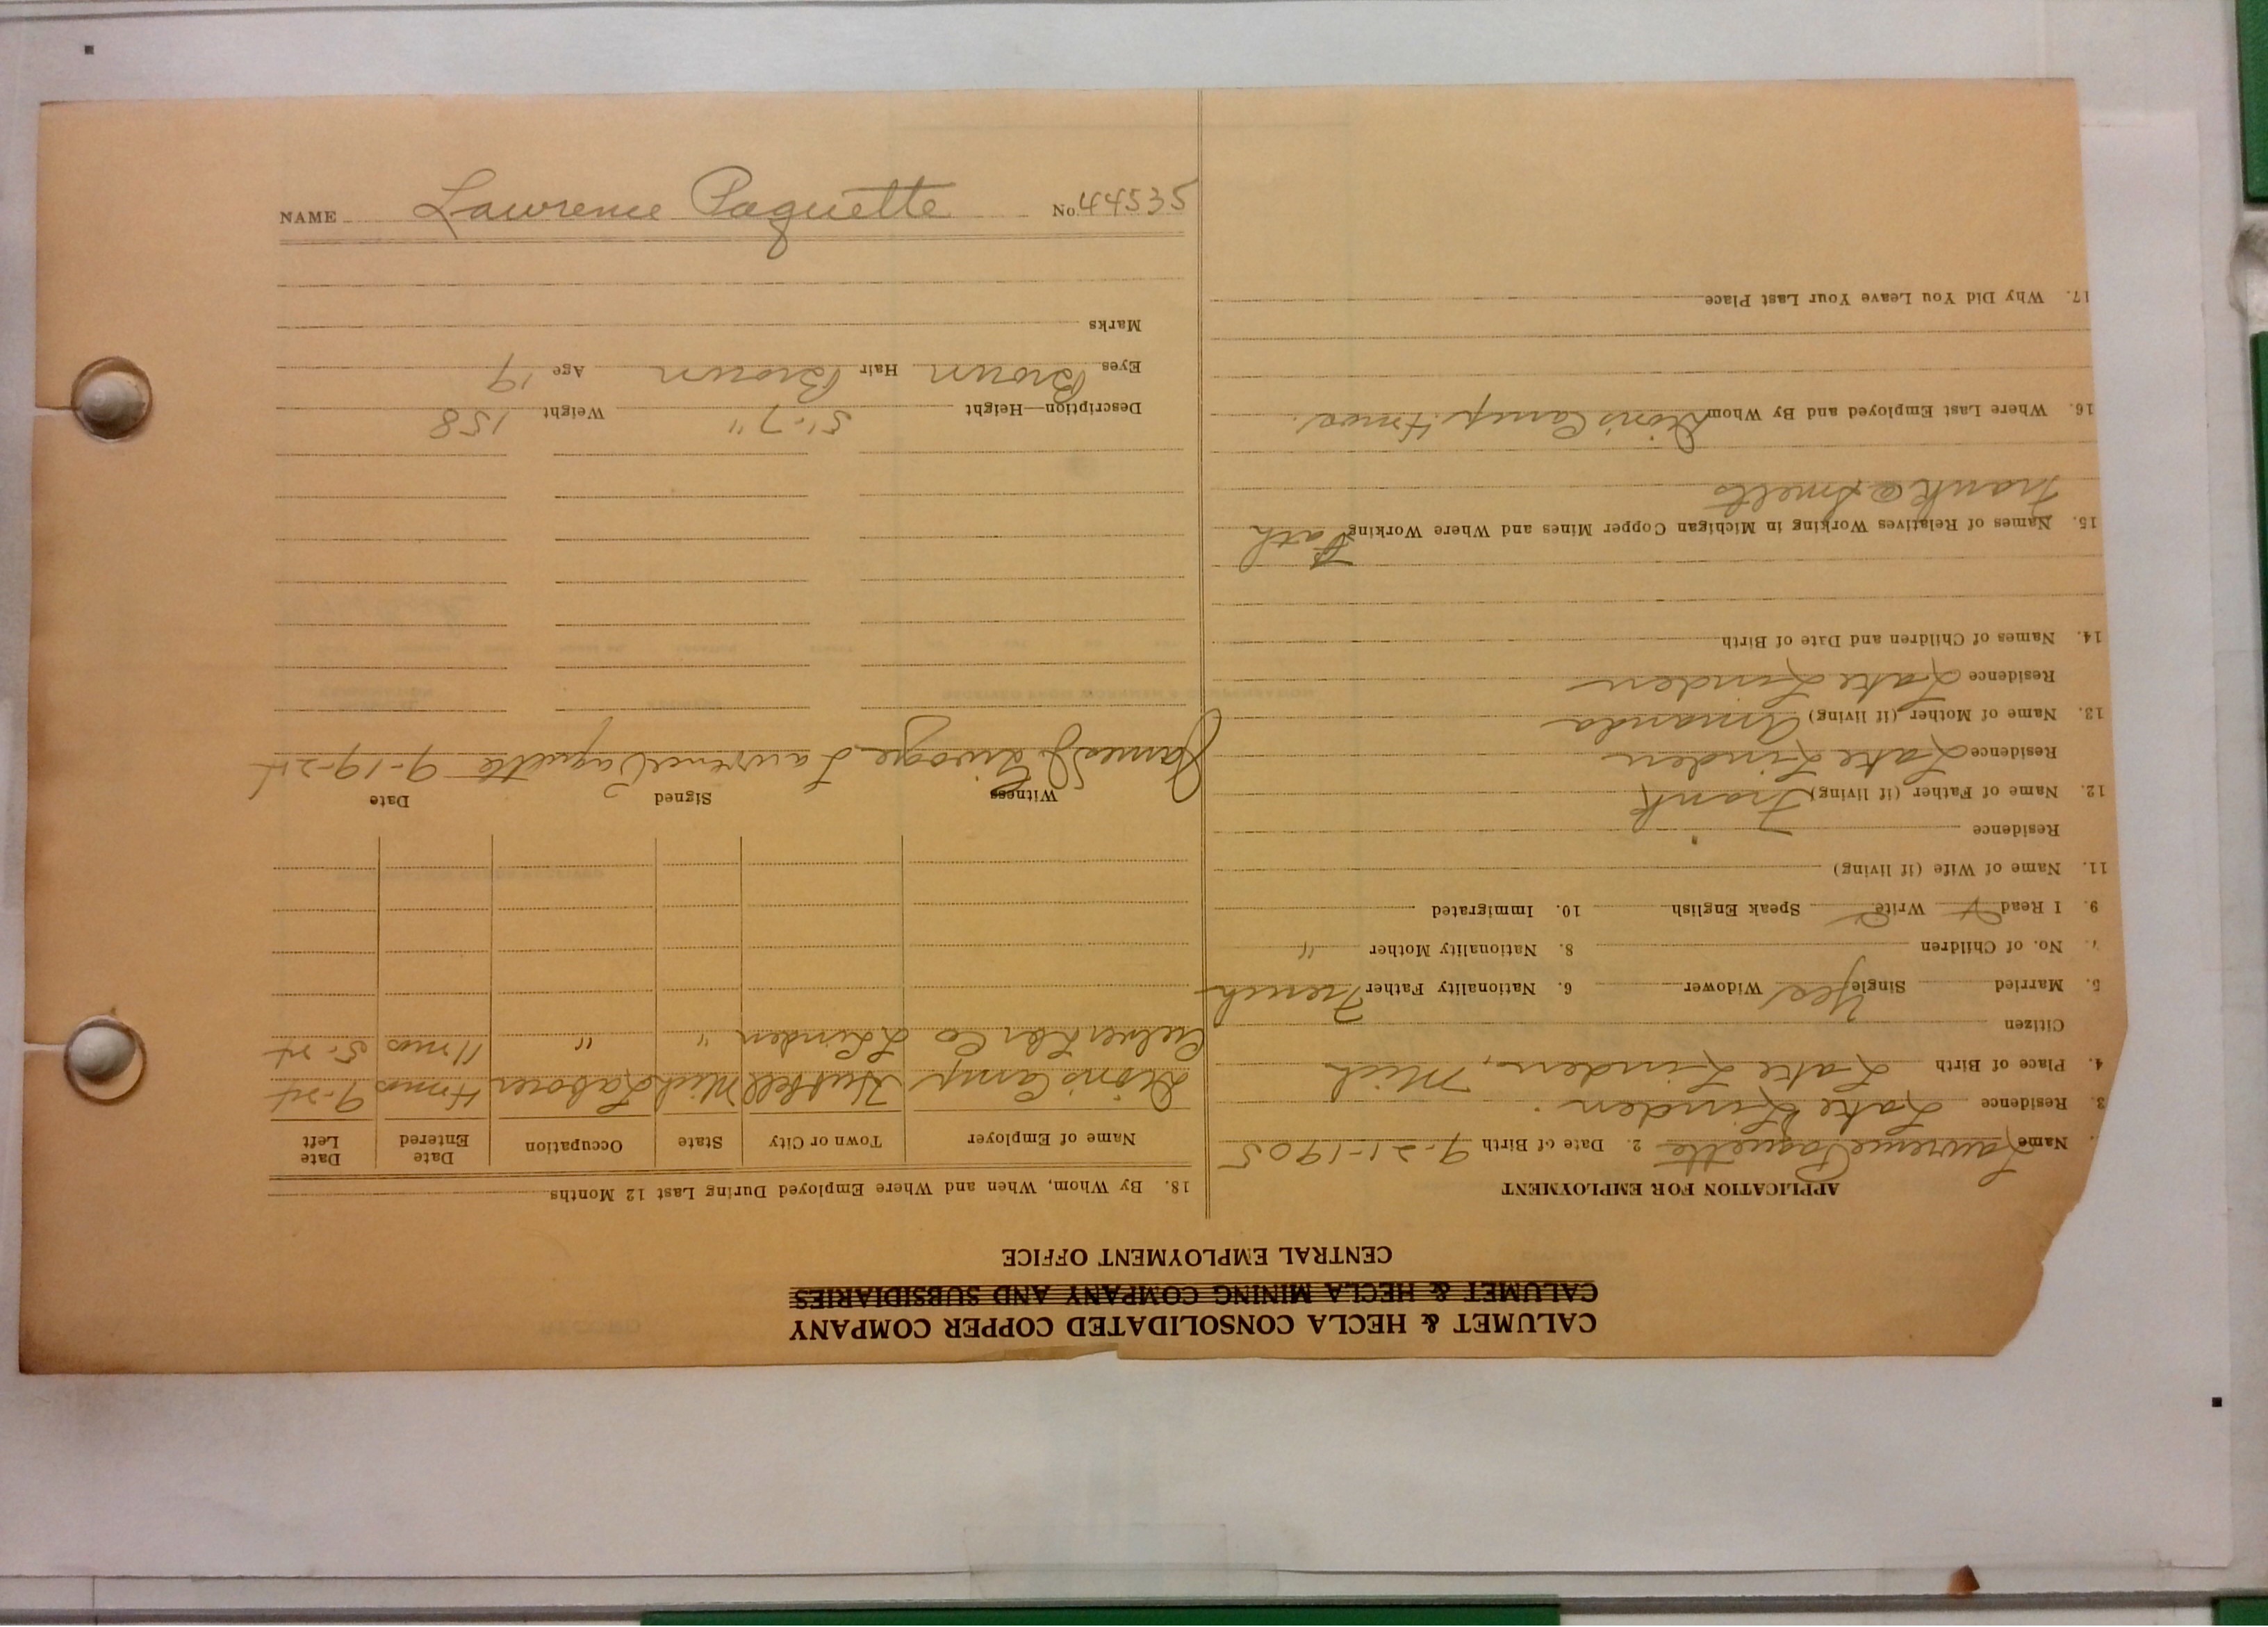 CALUMET & HECLA CONSOLIDATED COPPER COMPANY
CALUMET & HECLA MINING COMPANY AND SUBSIDIARIES
CENTRAL EMPLOYMENT OFFICE
APPLICATION FOR EMPLOYMENT
Name Lawrence Paquette 2. Date of Birth 9-21-1905
3. Residence Lake Linden.
4. Place of Birth Lake Linden, Mich
Citizen
5. Married Single Yes Widower 6. Nationality Father French
No. of Children 8. Nationality Mother "
9. I Read Write Speak English 10. Immigrated
11. Name of Wife (if living)
Residence
12. Name of Father (if living) Frank
Residence Lake Linden
13. Name of Mother (if living) Amanda
Residence Lake Linden
14. Names of Children and Date of Birth
15. Names of Relatives Working in Michigan Copper Mines and Where Working Fath
Frank @ Smelts
16. Where Last Employed and By Whom Camp 4 mos.
17. Why Did You Leave Your Last Place
18. By Whom, When and Where Employed During Last 12 Months
Name of Employer Town or City State Occupation Date Entered Date Left
Camp Hubbell Mich Laborer 4 mos 9-24
Lbr Co L Linden " " 11 mos 5-24
Witness Signed Date
James Lawrence Paquette 9-19-24
Description—Height 5'-7" Weight 158
Eyes Brown Hair Brown Age 19
Marks
NAME Lawrence Paquette No. 44535